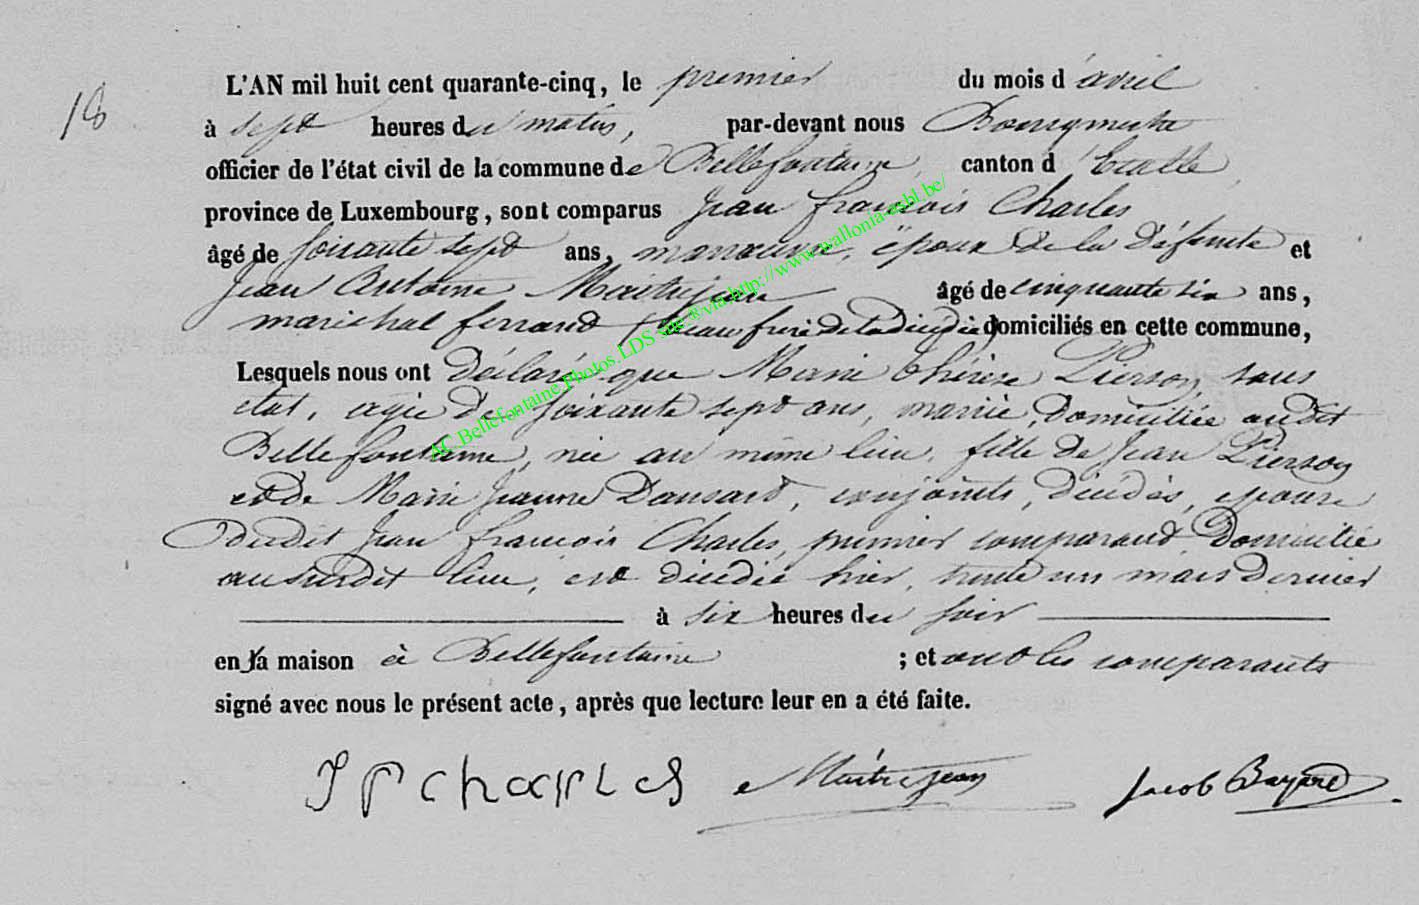 18
L'AN mil huit cent quarante-cinq, le premier du mois d'avril
à sept heures du matin, par-devant nous Bourgmestre
officier de l'état civil de la commune de Bellefontaine, canton d'Etalle,
province de Luxembourg, sont comparus Jean françois Charles
âgé de soixante sept ans, manœuvre, époux de la Défunte et
Jean Antoine Maitrejean âgé de cinquante six ans,
maréchal ferrand (beau frère de la décédée) domiciliés en cette commune,
Lesquels nous ont déclaré que Marie thérèse Pierson, sans
état, agée de soixante sept ans, mariée, domiciliée audit
Bellefontaine, née au même lieu, fille de Jean Pierson
et de Marie Jeanne Dansard, conjoints, décédés, épouse
dudit Jean françois Charles, premier comparand, Domicilié
au susdit lieu, est décédée hier, trente un mars dernier
à six heures du soir
en sa maison à Bellefontaine ; et ont les comparants
signé avec nous le présent acte, après que lecture leur en a été faite.
JfCharles Maitrejean Jacob Bayard
AC Bellefontaine.Photos.LDS site ®via http://www.wallonia-asbl.be/